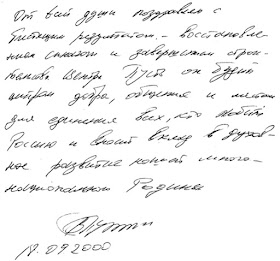 От всей души поздравляю с
блестящим результатом - восстановле-
нием синагоги и завершением строи-
тельства Центра. Пусть он будет
центром добра, общения и местом
для единения всех, кто любит
Россию и вносит вклад в духов-
ное развитие нашей много-
национальной Родины
В Путин
18.09 2000